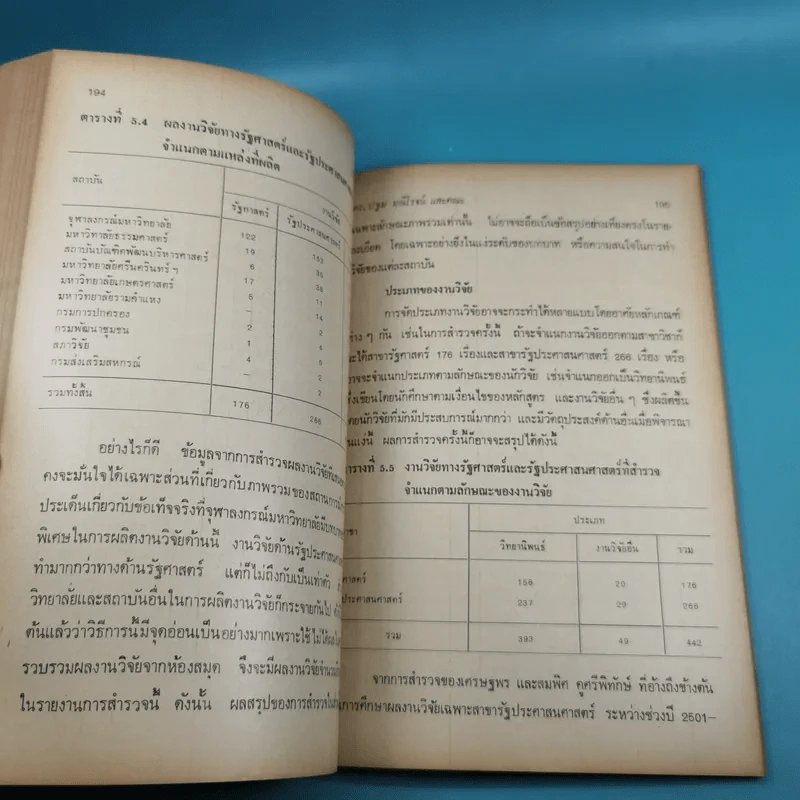 194
ตารางที่ 5.4 ผลงานวิจัยทางรัฐศาสตร์และรัฐประศาสน
จำแนกตามแหล่งที่ผลิต
สถาบัน
งานวิจัย
รัฐศาสตร์ รัฐประศาสนศาสตร์
จุฬาลงกรณ์มหาวิทยาลัย 122 152
มหาวิทยาลัยธรรมศาสตร์ 19
สถาบันบัณฑิตพัฒนบริหารศาสตร์ 6
มหาวิทยาลัยศรีนครินทร์ ฯ 17
มหาวิทยาลัยเกษตรศาสตร์ 5 11
มหาวิทยาลัยรามคำแหง – 14
กรมการปกครอง 2 2
กรมพัฒนาชุมชน 1 4
สภาวิจัย 4 5
กรมส่งเสริมสหกรณ์ – 2
2
รวมทั้งสิ้น 176 266
อย่างไรก็ดี ข้อมูลจากการสำรวจผลงานวิจัย
คงจะมั่นใจได้เฉพาะส่วนที่เกี่ยวกับภาพรวมของสถานการณ์
ประเด็นเกี่ยวกับข้อเท็จจริงที่จุฬาลงกรณ์มหาวิทยาลัย
พิเศษในการผลิตงานวิจัยด้านนี้ งานวิจัยด้านรัฐประศาสน
ทำมากกว่าทางด้านรัฐศาสตร์ แต่ก็ไม่ถึงกับเป็นเท่าตัว
วิทยาลัยและสถาบันอื่นในการผลิตงานวิจัยก็กระจายกันไป
ต้นแล้วว่าวิธีการนี้มีจุดอ่อนเป็นอย่างมากเพราะใช้ไม่ได้
รวบรวมผลงานวิจัยจากห้องสมุด จึงจะมีผลงานวิจัยจำนวน
ในรายงานการสำรวจนี้ ดังนั้น ผลสรุปของการสำรวจ
ปฐม มณีโรจน์ และคณะ 195
เฉพาะลักษณะภาพรวมเท่านั้น ไม่อาจจะถือเป็นข้อสรุปอย่างเที่ยงตรงในราย-
ละเอียด โดยเฉพาะอย่างยิ่งในแง่ระดับของบทบาท หรือความสนใจในการทำ
วิจัยของแต่ละสถาบัน
ประเภทของงานวิจัย
การจัดประเภทงานวิจัยอาจจะกระทำได้หลายแบบโดยอาศัยหลักเกณฑ์
ต่าง ๆ กัน เช่นในการสำรวจครั้งนี้ ถ้าจะจำแนกงานวิจัยออกตามสาขาวิชาก็
จะได้สาขารัฐศาสตร์ 176 เรื่องและสาขารัฐประศาสนศาสตร์ 266 เรื่อง หรือ
อาจจะจำแนกประเภทตามลักษณะของนักวิจัย เช่นจำแนกออกเป็นวิทยานิพนธ์
ซึ่งเขียนโดยนักศึกษาตามเงื่อนไขของหลักสูตร และงานวิจัยอื่น ๆ ซึ่งผลิตขึ้น
โดยนักวิจัยที่มักมีประสบการณ์มากกว่า และมีวัตถุประสงค์ด้านอื่นเมื่อพิจารณา
ในแง่นี้ ผลการสำรวจครั้งนี้ก็อาจจะสรุปได้ดังนี้
ตารางที่ 5.5 งานวิจัยทางรัฐศาสตร์และรัฐประศาสนศาสตร์ที่สำรวจ
จำแนกตามลักษณะของงานวิจัย
ประเภท
วิทยานิพนธ์ งานวิจัยอื่น รวม
ศาสตร์ 156 20 176
ประศาสนศาสตร์ 237 29 266
รวม 393 49 442
จากการสำรวจของเศรษฐพร และสมพิศ คูศรีพิทักษ์ ที่อ้างถึงข้างต้น
การศึกษาผลงานวิจัยเฉพาะสาขารัฐประศาสนศาสตร์ ระหว่างช่วงปี 2501-